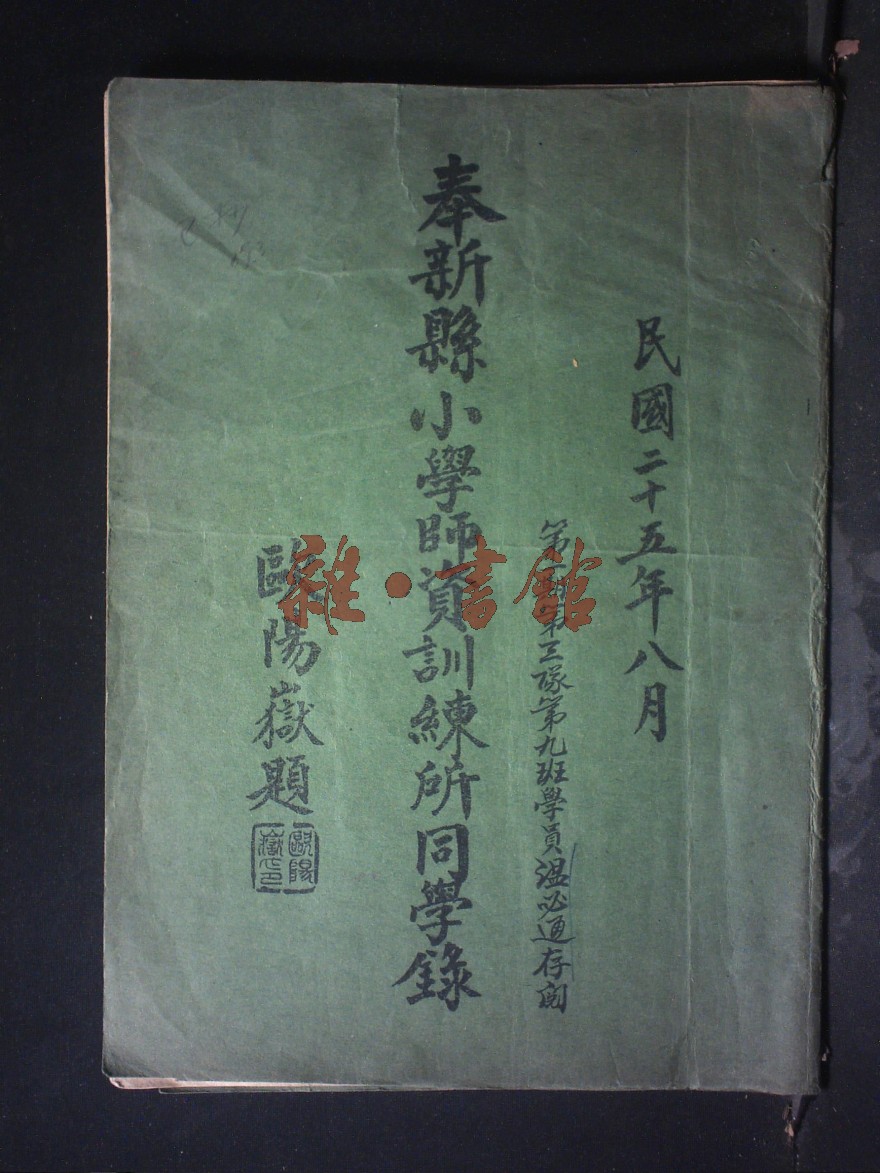 民國二十五年八月
第一期第三隊第九班學員溫必通存閱
奉新縣小學師資訓練所同學錄
歐陽嶽題
歐陽
嶽印
雜·書館